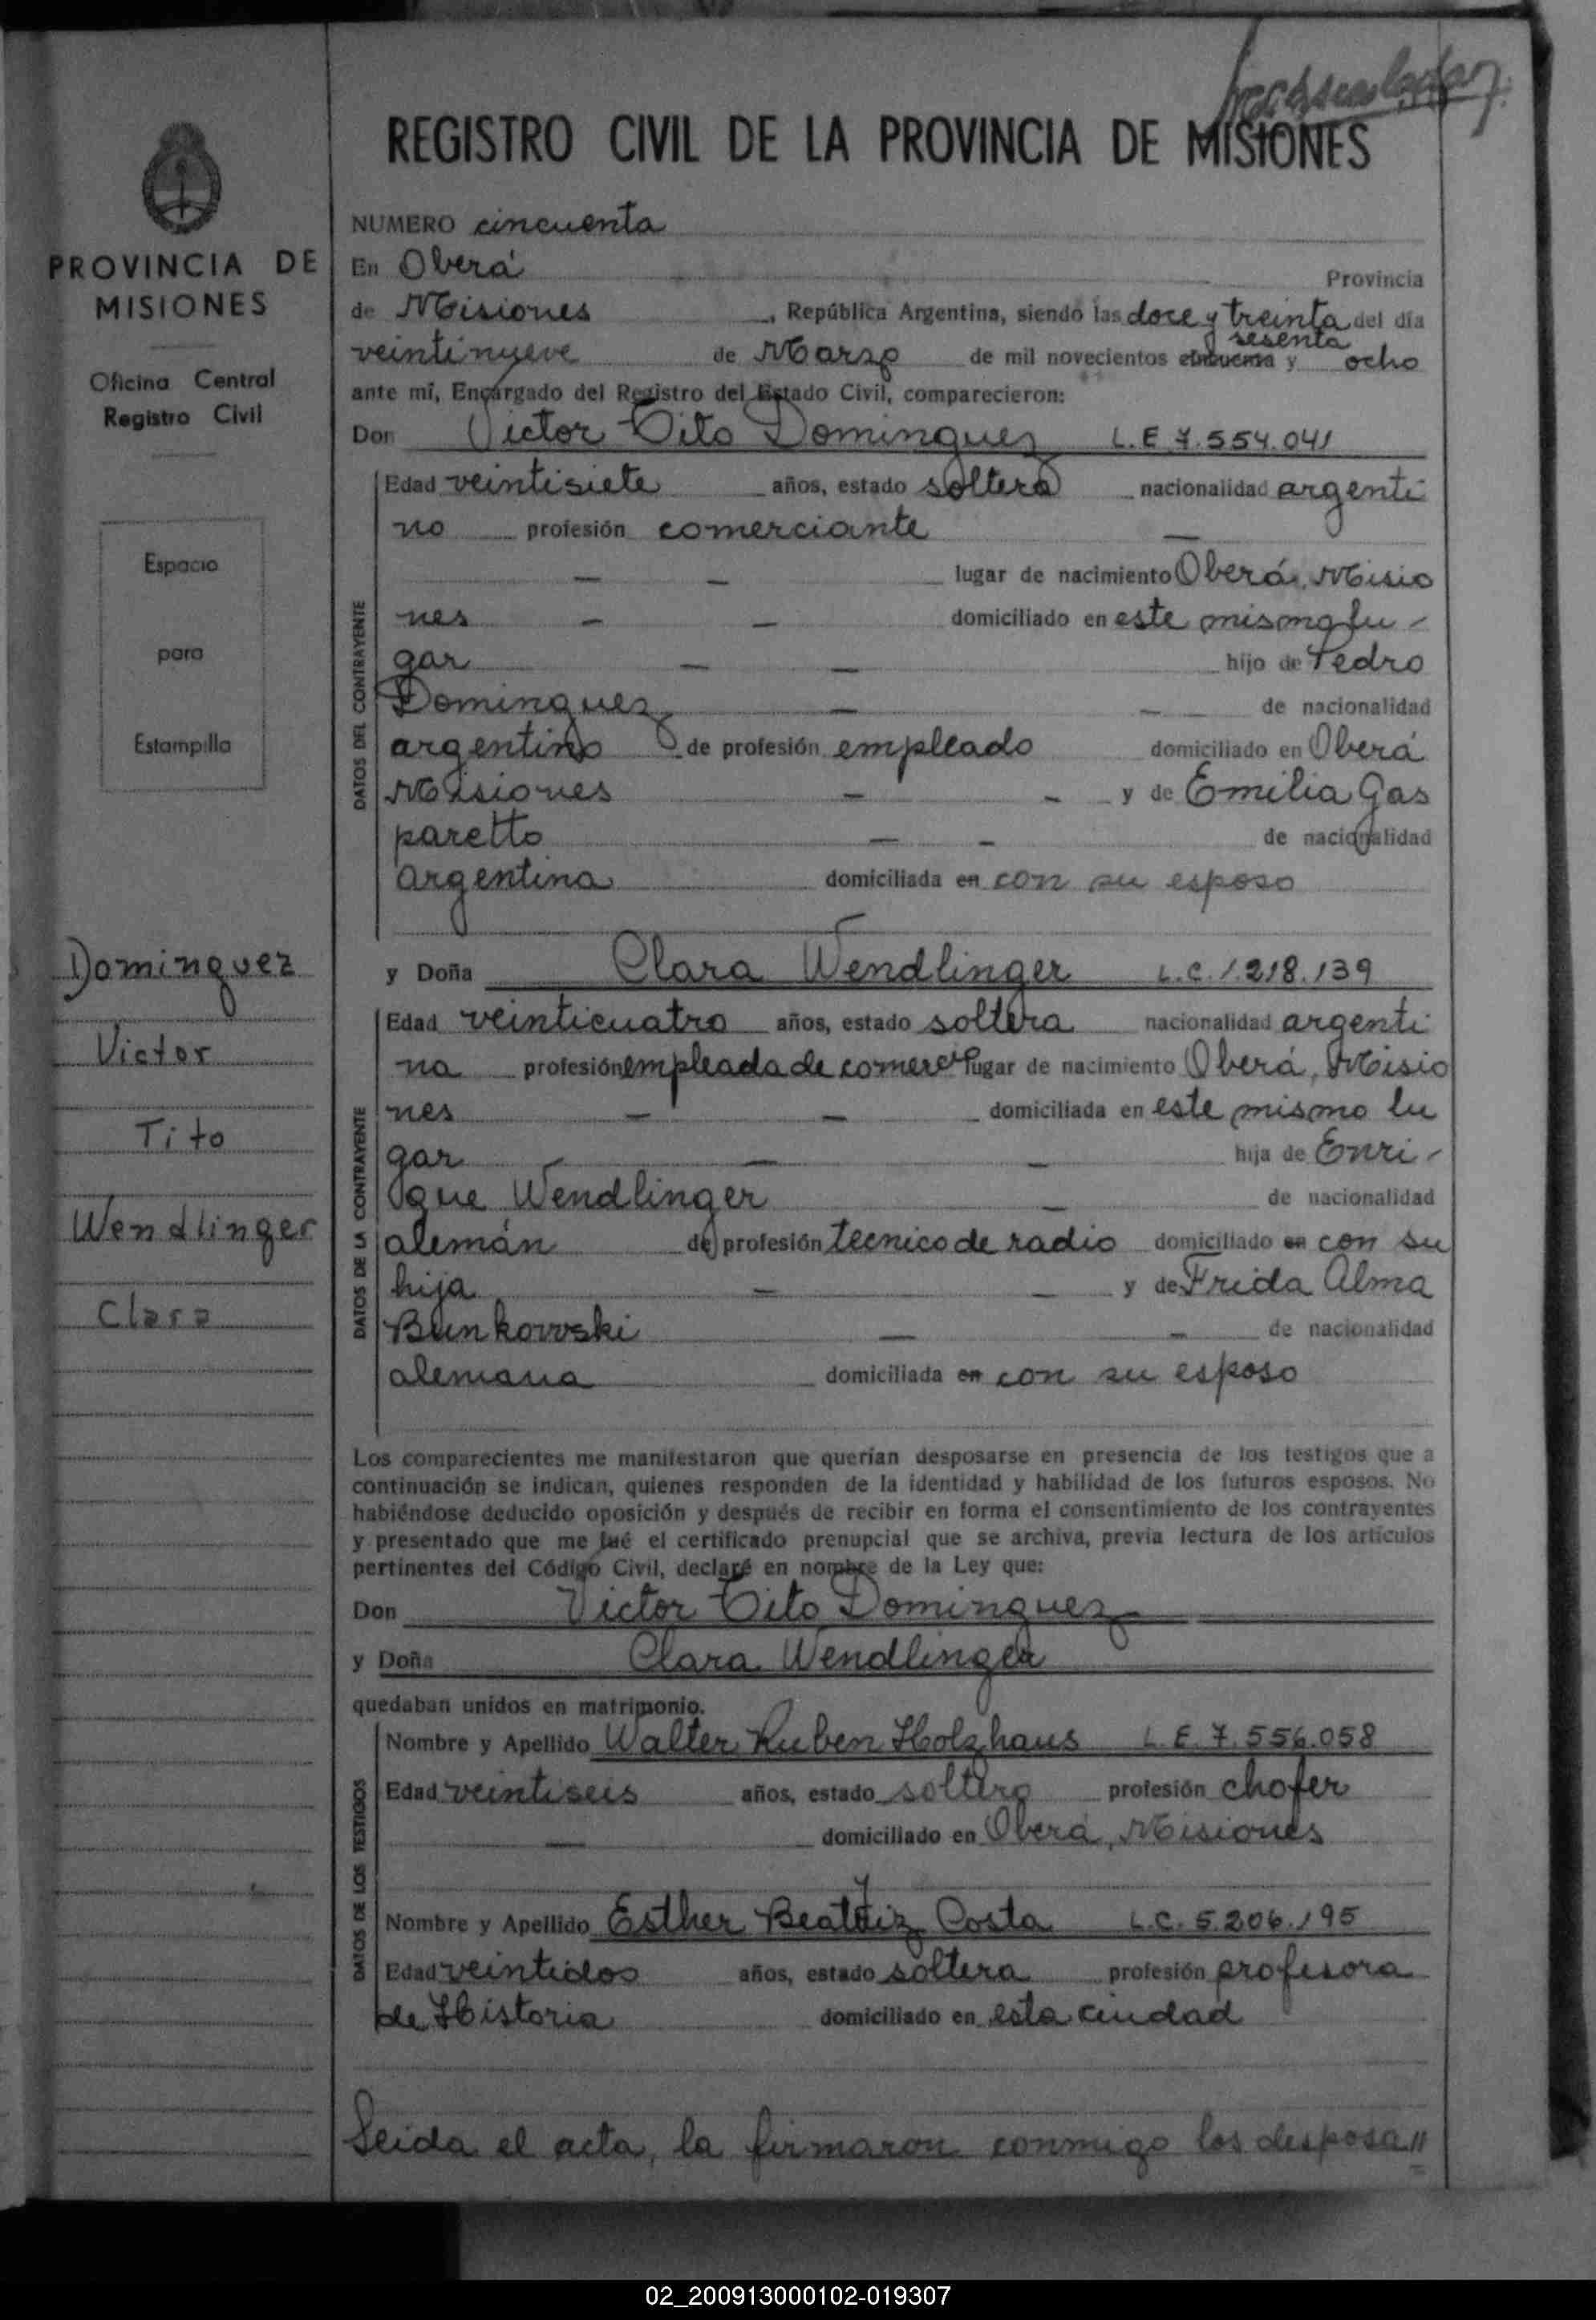 REGISTRO CIVIL DE LA PROVINCIA DE MISIONES
PROVINCIA DE
MISIONES
Oficina Central
Registro Civil
Espacio
para
Estampilla
Dominguez
Victor
Tito
Wendlinger
Clara
NUMERO cincuenta
En Oberá Provincia
de Misiones, República Argentina, siendo las doce y treinta del día
sesenta
veintinueve de Marzo de mil novecientos cincuenta y ocho
ante mí, Encargado del Registro del Estado Civil, comparecieron:
Don Victor Tito Dominguez L.E 7.554.041
DATOS DEL CONTRAYENTE
Edad veintisiete años, estado soltero nacionalidad argenti
no profesión comerciante —
— — lugar de nacimiento Oberá, Misio
nes — — domiciliado en este mismo lu-
gar — — hijo de Pedro
Dominguez — — de nacionalidad
argentino de profesión empleado domiciliado en Oberá
Misiones — — y de Emilia Gas
paretto — — de nacionalidad
argentina domiciliada en con su esposo
y Doña Clara Wendlinger L.C. 1.218.139
DATOS DE LA CONTRAYENTE
Edad veinticuatro años, estado soltera nacionalidad argenti
na profesión empleada de comercio lugar de nacimiento Oberá, Misio
nes — — domiciliada en este mismo lu
gar — — — hija de Enri-
que Wendlinger — de nacionalidad
alemán de profesión tecnico de radio domiciliado en con su
hija — — y de Frida Alma
Bunkowski — — de nacionalidad
alemana domiciliada en con su esposo
Los comparecientes me manifestaron que querían desposarse en presencia de los testigos que a
continuación se indican, quienes responden de la identidad y habilidad de los futuros esposos. No
habiéndose deducido oposición y después de recibir en forma el consentimiento de los contrayentes
y presentado que me fué el certificado prenupcial que se archiva, previa lectura de los artículos
pertinentes del Código Civil, declaré en nombre de la Ley que:
Don Victor Tito Dominguez
y Doña Clara Wendlinger
quedaban unidos en matrimonio.
DATOS DE LOS TESTIGOS
Nombre y Apellido Walter Ruben Holzhaus L.E. 7.556.058
Edad veintiseis años, estado soltero profesión chofer
— domiciliado en Oberá, Misiones
y
Nombre y Apellido Esther Beatriz Costa L.C. 5.206.195
Edad veintidos años, estado soltera profesión profesora
de Historia domiciliado en esta ciudad
Leida el acta, la firmaron conmigo los desposa"
02_200913000102-019307